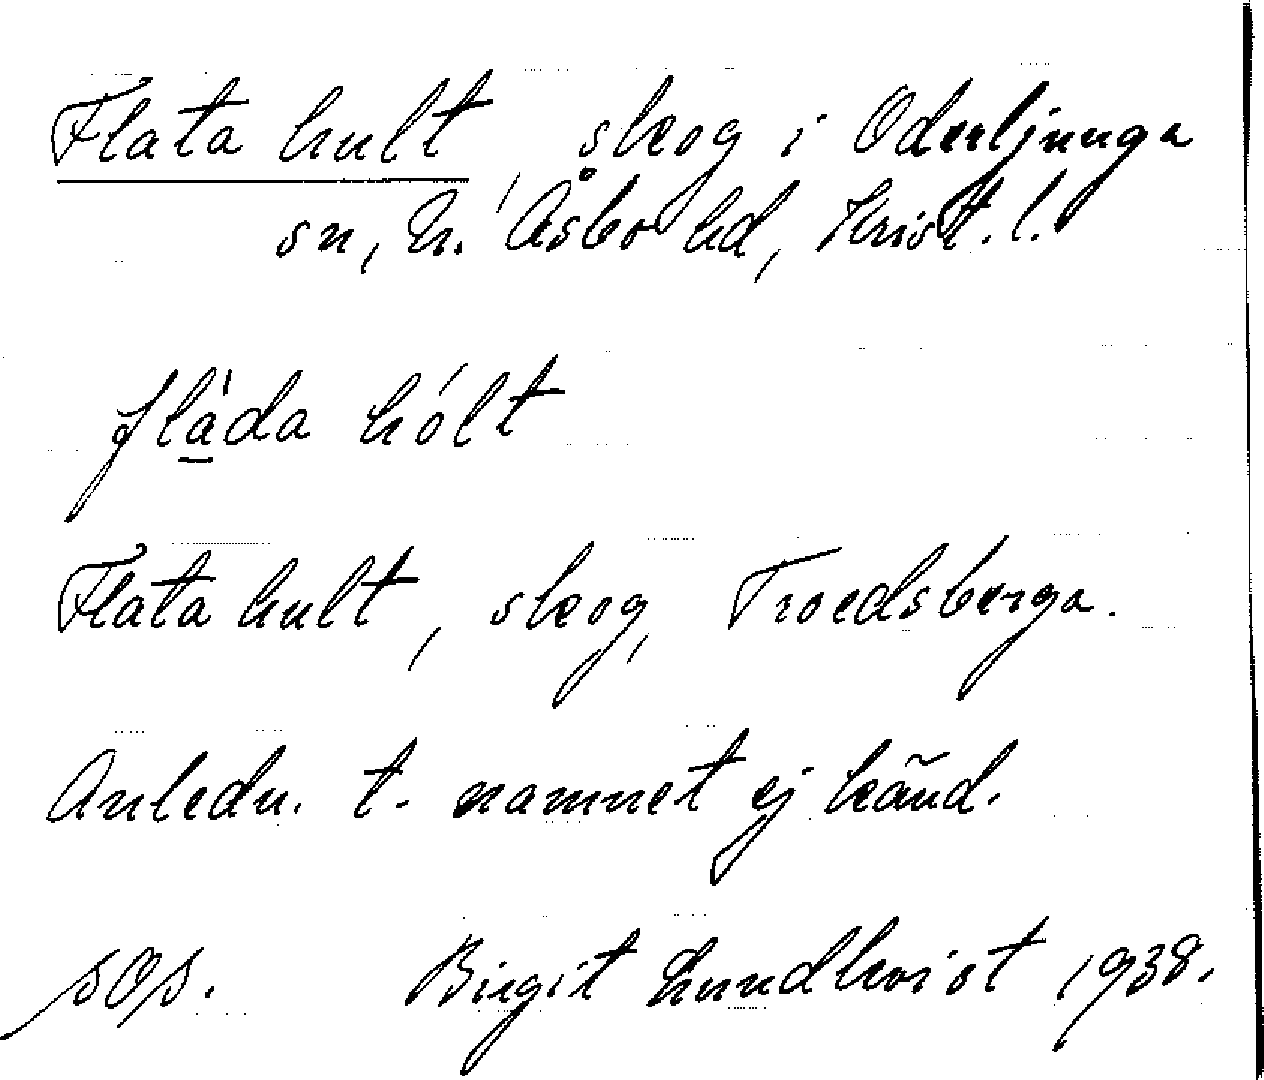 Flata hult, skog i Oderljunga
sn, N. Åsbo hd, Krist. l.
flàda hólt
Flata hult, skog, Troedsberga.
Anledn. t. namnet ej känd.
SOS. Birgit Lundkvist 1938.